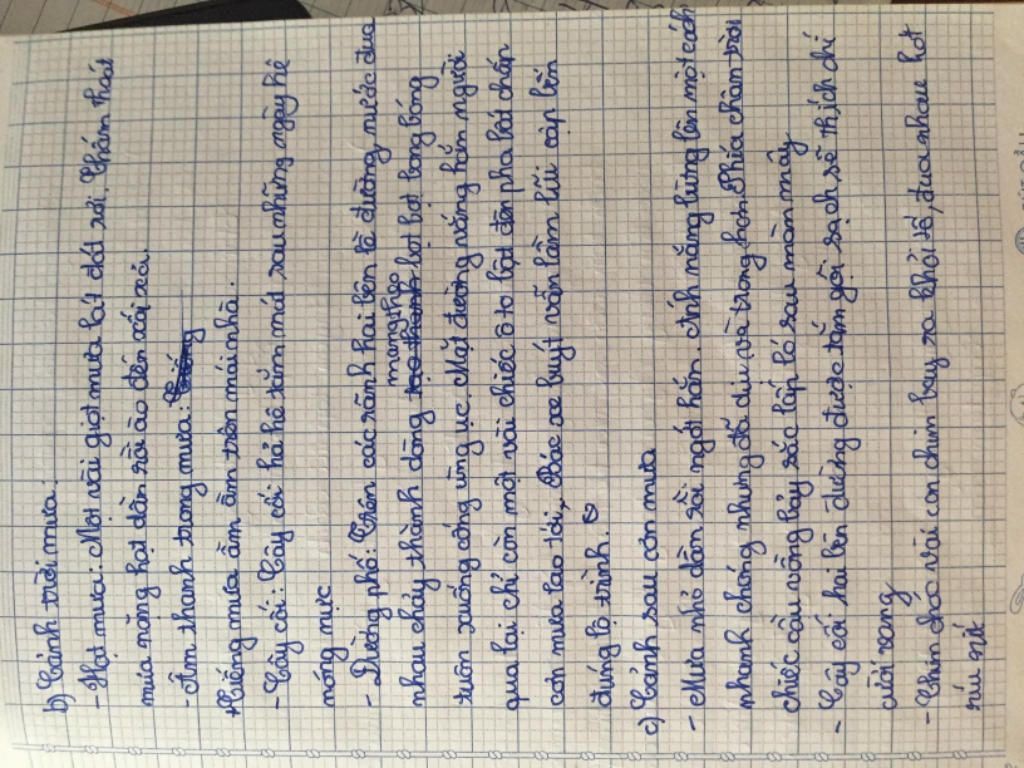 b) Cảnh trời mưa:
- Hạt mưa: Một vài giọt mưa lát đát rơi. Chấm thoát
mưa nặng hạt dần rồi ào đến xối xả.
- Âm thanh trong mưa:
+ Tiếng mưa ầm ầm trên mái nhà.
- Cây cối: Cây cối hả hê tắm mát sau những ngày hè
nóng nực
- Đường phố: Trên các rãnh hai bên lề đường, nước đua
nhau chảy thành dòng mang theo bọt bọt bong bóng
tuôn xuống cống ùng ục. Mặt đường vắng hẳn người
qua lại chỉ còn một vài chiếc ô tô bật đèn pha bất chấp
cơn mưa lao tới, Bác xe buýt vẫn lầm lũi cập bến
đúng lộ trình.
c) Cảnh sau cơn mưa
- Mưa nhỏ dần rồi ngớt hẳn. Ánh nắng bừng lên một cách
nhanh chóng nhưng đã dịu và trong hơn. Phía chân trời
chiếc cầu vồng bảy sắc lấp ló sau màn mây
- Cây cối hai bên đường được tắm gội sạch sẽ thích chí
cười vang
- Chim chóc vài con chim bay ra khỏi tổ, đua nhau hót
ríu rít